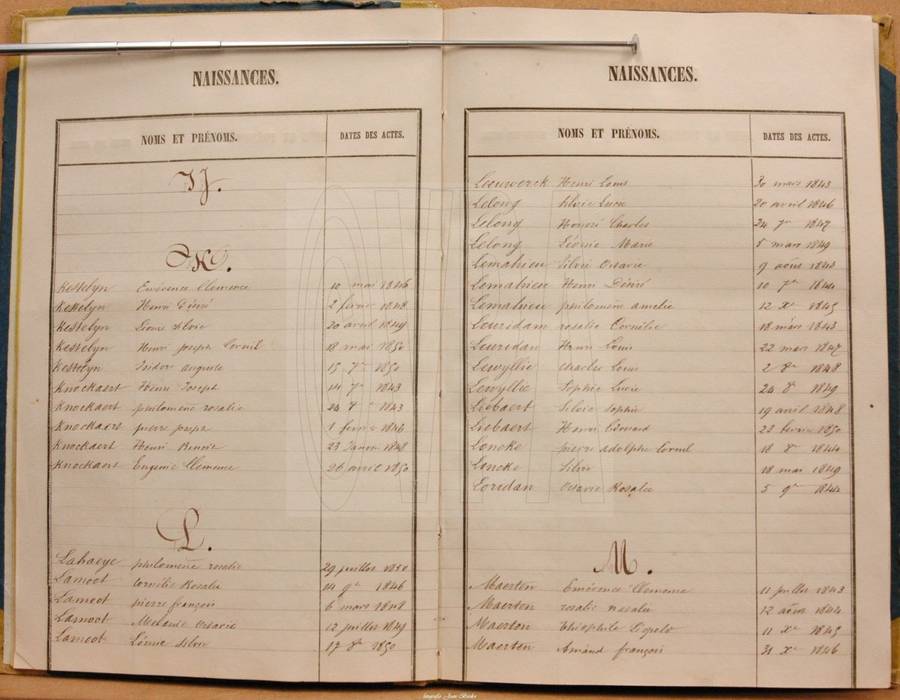 NAISSANCES.
NOMS ET PRÉNOMS. DATES DES ACTES.
IJ.
K.
Kesselyn Emérence Clemence 10 mai 1846
Kesselyn Henri Désiré 2 fevrier 1848
Kesselyn Silvie 20 avril 1849
Kesselyn Henri joseph Cornil 18 mai 1850
Kesselyn Isidor auguste 15 7re 1850
Knockaert Henri Joseph 14 7re 1843
Knockaert philomene rosalie 24 1843
Knockaert pierre joseph 1 fevrier 1846
Knockaert Henri Benoit 23 Janvier 1848
Knockaert Eugenie Clemence 26 avril 1850
L.
Lahaeye philomene rosalie 29 juillet 1850
Lamoot Cornélie Rosalie 14 9re 1846
Lamoot pierre françois 6 mars 1848
Lamoot Melanie Octavie 12 juillet 1849
Lamoot Léonie Silvie 17 8re 1850
NAISSANCES.
NOMS ET PRÉNOMS. DATES DES ACTES.
Leeuwerck Henri Louis 30 mars 1843
Lelong Silvie Lucie 20 avril 1846
Lelong Honoré Charles 24 7re 1847
Lelong Léonie Marie 5 mars 1849
Lemahieu Silvie Octavie 9 août 1844
Lemahieu Henri Désiré 10 7re 1844
Lemahieu philomène amelie 12 Xre 1845
Leuridam rosalie Cornélie 18 mars 1843
Leuridan Henri Louis 22 mars 1847
Lewyllie Charles Louis 2 8re 1848
Lewyllie Sophie Lucie 24 8 1849
Liebaert Silvie Sophie 19 avril 1848
Liebaert Henri Edouard 22 fevrier 1850
Loncke pierre adolphe Cornil 18 8 1844
Loncke Silvie 18 mai 1849
Loridan Octavie Rosalie 5 9re 1844
M.
Maerten Emérence Clemence 11 juillet 1843
Maerten rosalie 12 août 1844
Maerten Théophile 11 Xre 1845
Maerten Amand françois 31 Xre 1846